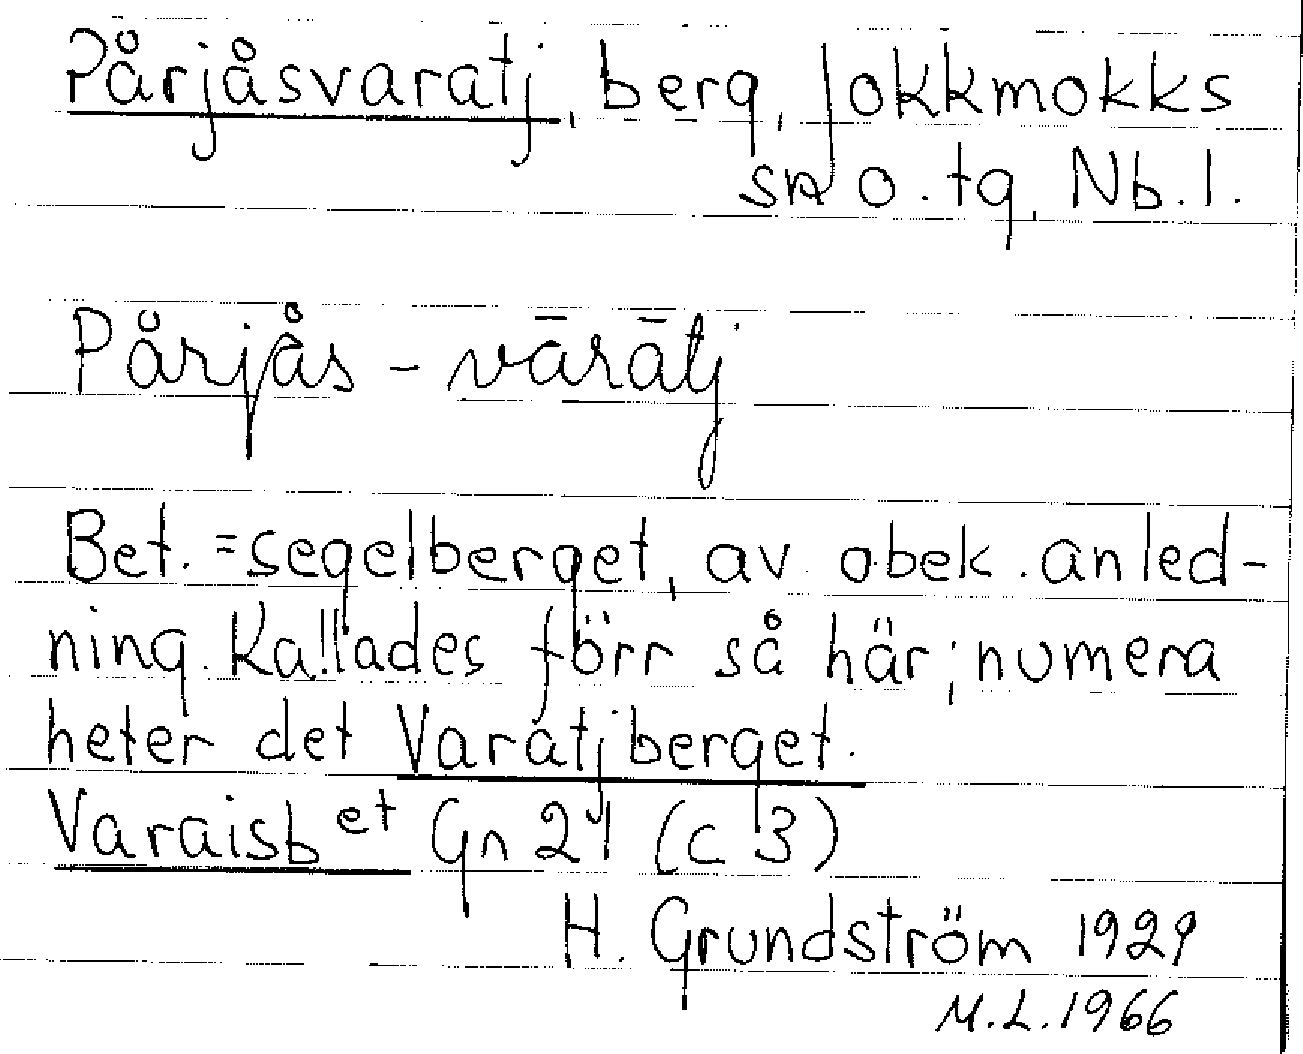 Pårjåsvaratj, berg, Jokkmokks
sn o. tg, Nb. l.
Pårjås - vārātj
Bet. = segelberget, av obek. anled-
ning. Kallades förr så här; numera
heter det Varatjberget.
Varaisb et Gn 21 (c 3)
H. Grundström 1929
M.L. 1966